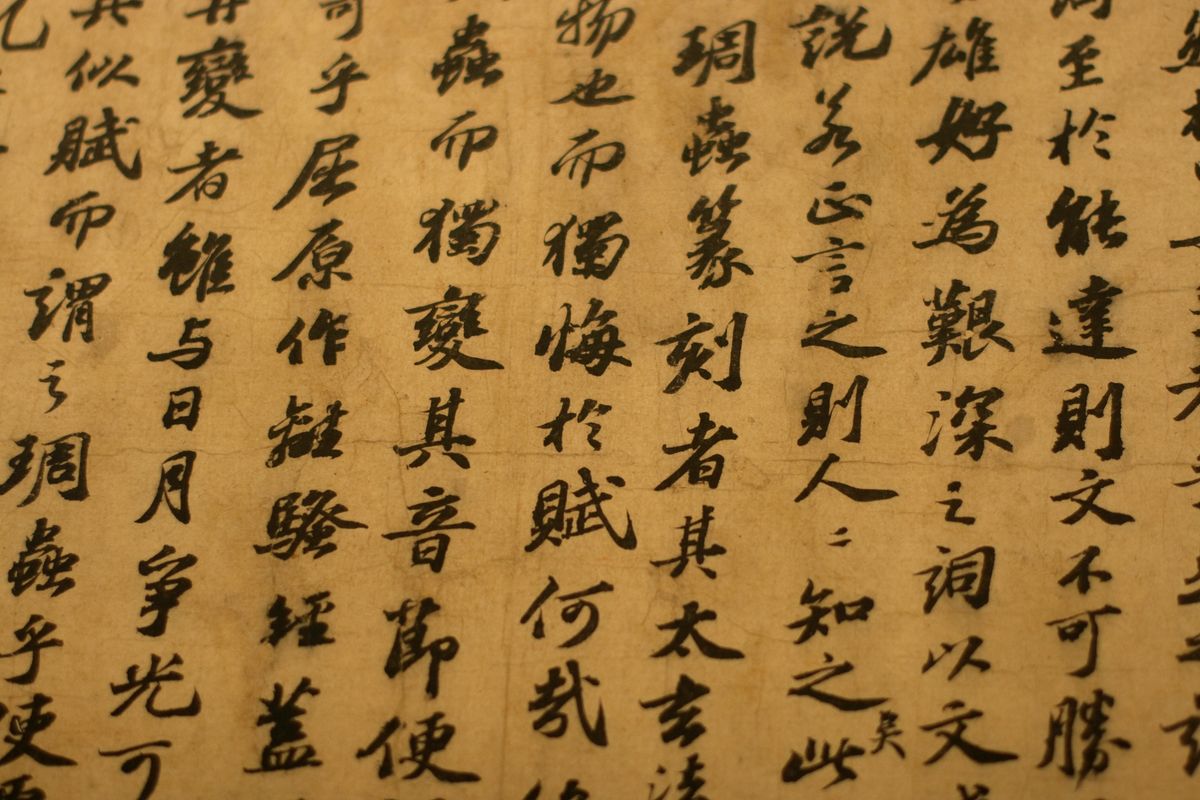 至於能達則文不可勝
雄好為艱深之詞以文
說若正言之則人二知之矣此
琱蟲篆刻者其太玄法
物也而獨悔於賦何哉
蟲而獨變其音節便
可乎屈原作離騷經蓋
再變者雖与日月爭光可
其似賦而謂之琱蟲乎使